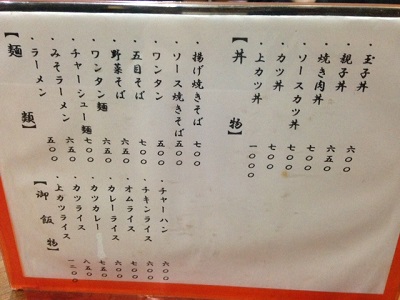 【麺類】
・ラーメン 五〇〇
・みそラーメン 六五〇
・チャーシュー麺 七〇〇
・ワンタン麺 六五〇
・野菜そば 六五〇
・五目そば 七〇〇
・ワンタン 五〇〇
・ソース焼きそば 五〇〇
・揚げ焼きそば 七〇〇
【丼物】
・上カツ丼 一〇〇〇
・カツ丼 七〇〇
・ソースカツ丼 七〇〇
・焼き肉丼 七〇〇
・親子丼 六五〇
・玉子丼 六〇〇
【御飯物】
・上カツライス
・カツライス 八五〇
・カツカレー 七五〇
・カレーライス 六〇〇
・オムライス 七〇〇
・チキンライス 六〇〇
・チャーハン 六〇〇